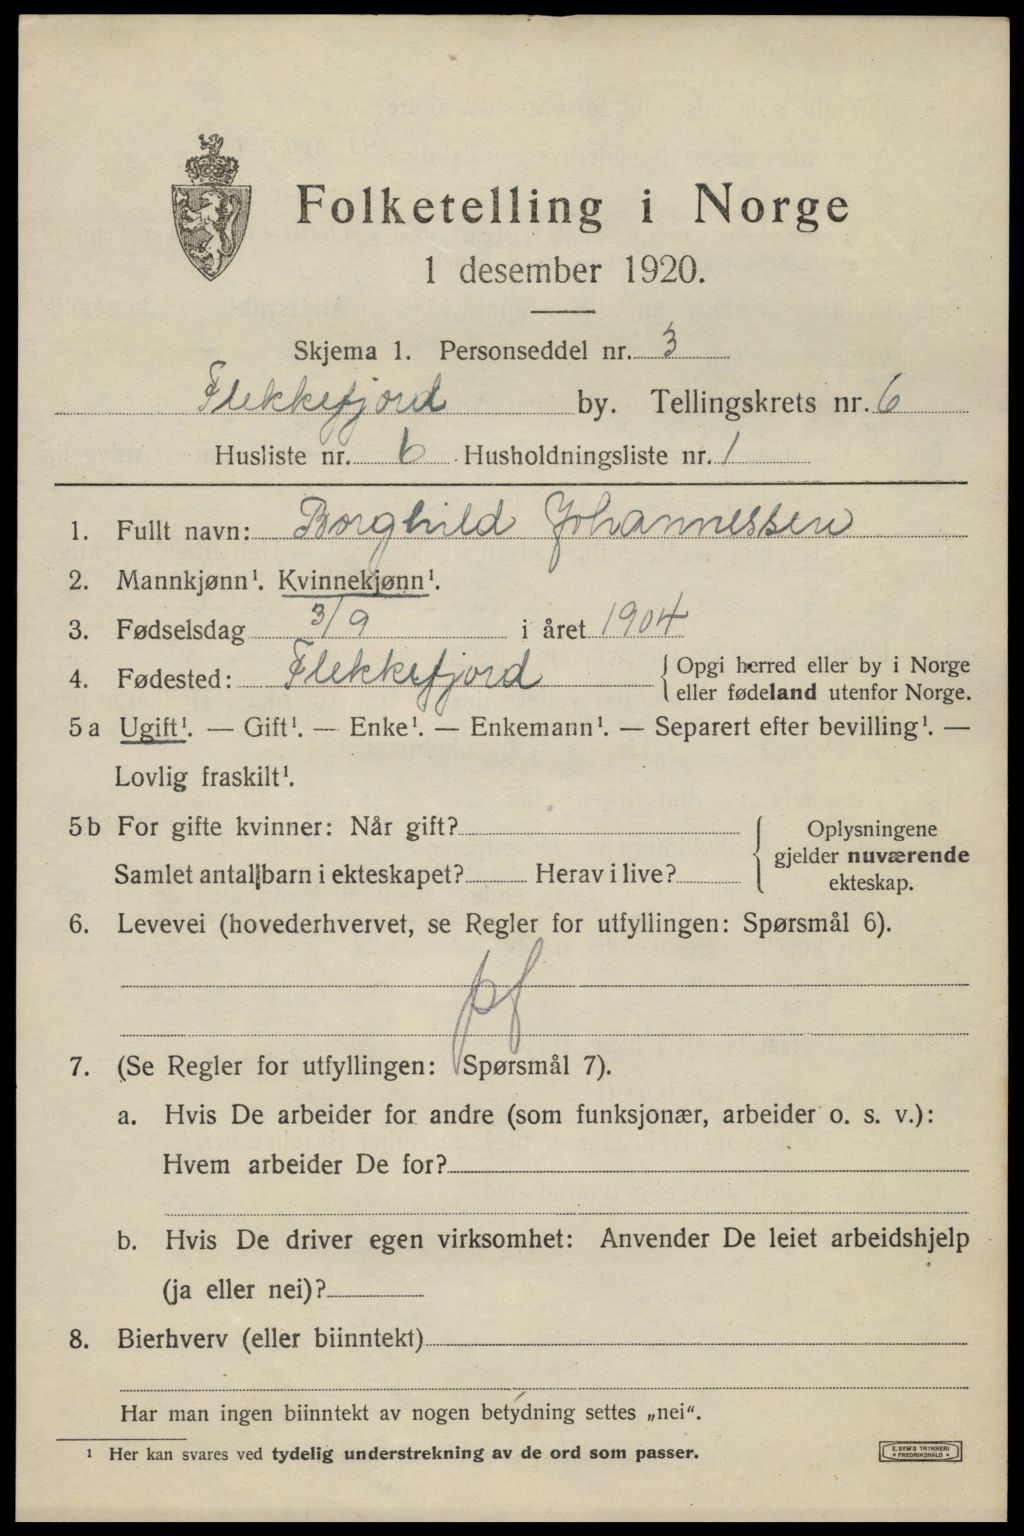 Folketelling i Norge
1 desember 1920.
Skjema 1. Personseddel nr. 3
Flekkefjord by. Tellingskrets nr. 6
Husliste nr. 6 Husholdningsliste nr. 1
1. Fullt navn: Borghild Johannessen
2. Mannkjønn¹. Kvinnekjønn¹.
3. Fødselsdag 3/9 i året 1904
4. Fødested: Flekkefjord { Opgi herred eller by i Norge
eller fødeland utenfor Norge.
5 a Ugift¹. — Gift¹. — Enke¹. — Enkemann¹. — Separert efter bevilling¹. —
Lovlig fraskilt¹.
5 b For gifte kvinner: Når gift?
Samlet antal barn i ekteskapet? Herav i live?
{ Oplysningene
gjelder nuværende
ekteskap.
6. Levevei (hovederhvervet, se Regler for utfyllingen: Spørsmål 6).
pf
7. (Se Regler for utfyllingen: Spørsmål 7).
a. Hvis De arbeider for andre (som funksjonær, arbeider o. s. v.):
Hvem arbeider De for?
b. Hvis De driver egen virksomhet: Anvender De leiet arbeidshjelp
(ja eller nei)?
8. Bierhverv (eller biinntekt)
Har man ingen biinntekt av nogen betydning settes „nei“.
¹ Her kan svares ved tydelig understrekning av de ord som passer.
E. SEM'S TRYKKERI
* FREDRIKSHALD *